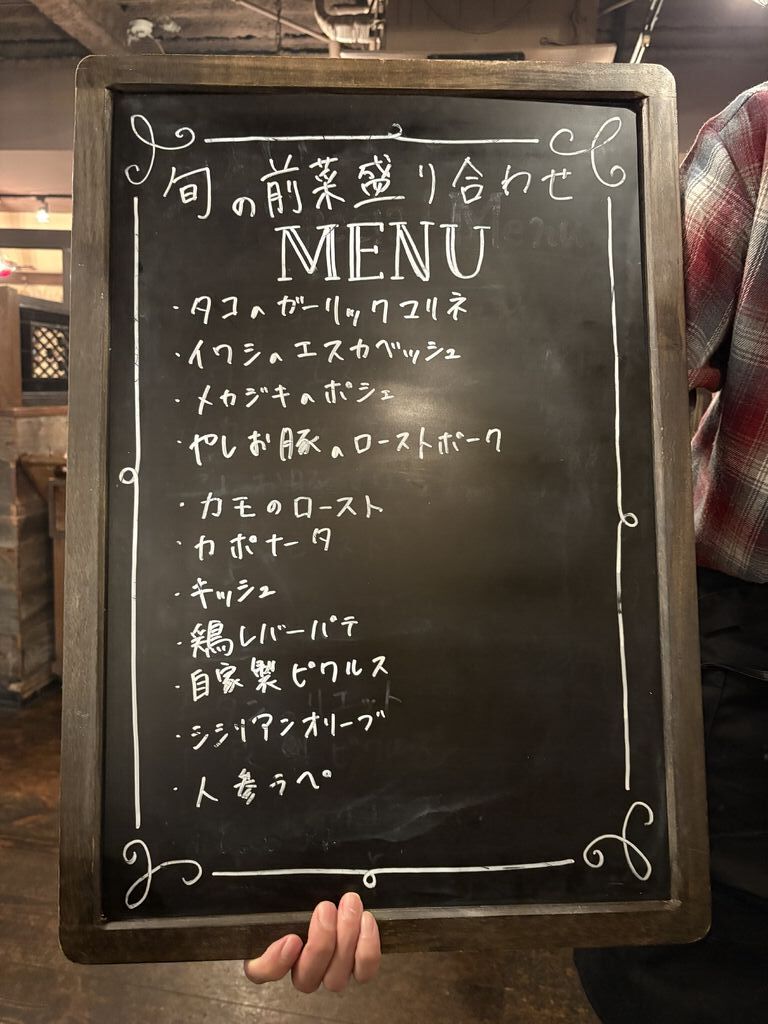 旬の前菜盛り合わせ
MENU
・タコのガーリックコリネ
・イワシのエスカベッシュ
・メカジキのポシェ
・やしお豚のローストポーク
・カモのロースト
・カポナータ
・キッシュ
・鶏レバーパテ
・自家製ピクルス
・シシリアンオリーブ
・人参ラペ